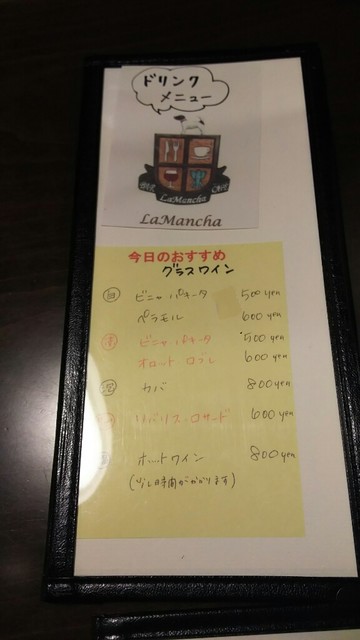 ドリンク
メニュー
BAR
LaMancha
LaMancha
今日のおすすめ
グラスワイン
白 ビニャ パキータ 500 yen
ペラモル 600 yen
赤 ビニャ パキータ 500 yen
オロット ロブレ 600 yen
泡 カバ 800 yen
リバリス ロサード 600 yen
ホットワイン 800 yen
(少し時間がかかります)